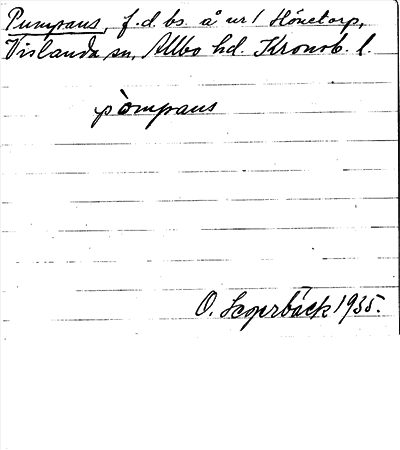 Pumprans, f.d. bs. å nr 1 Hönetorp,
Vislanda sn, Allbo hd. Kronob. l.
pòmprans
O. Sagerbäck 1935.